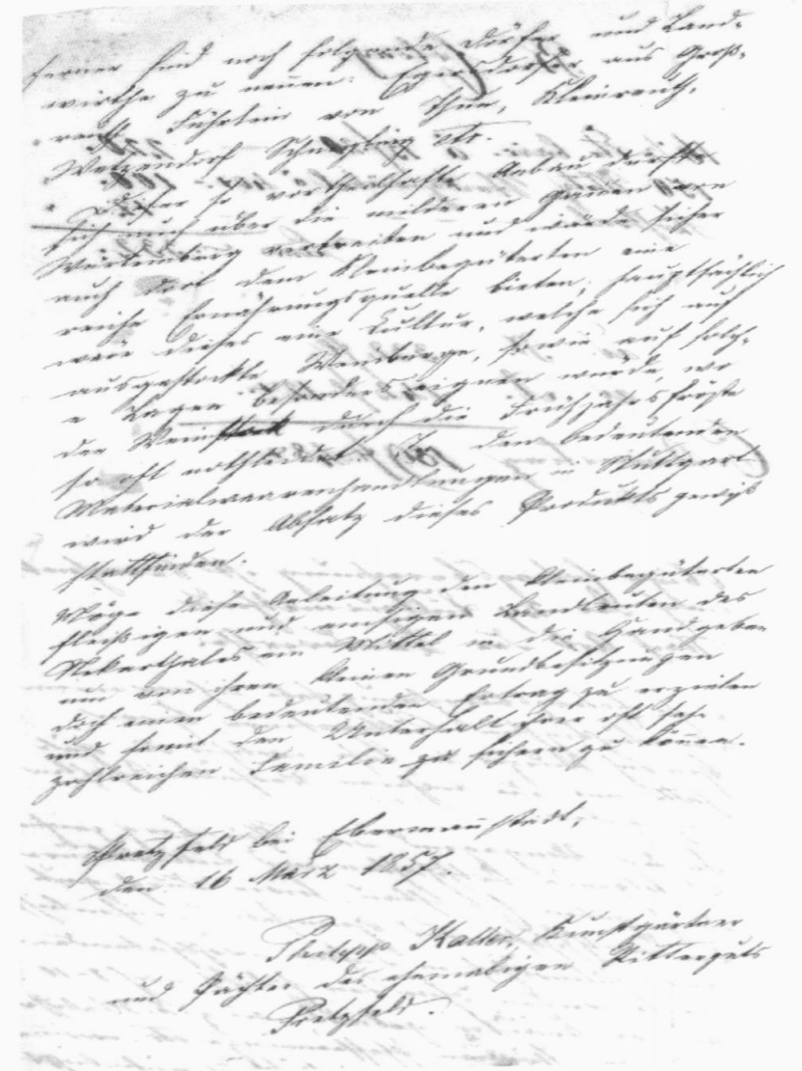 ferner sind noch folgende Dörfer und Land-
wirthe zu nennen: Egersdorfer aus Groß-
reuth, Führlein von Thon, Kleinreuth,
Wetzendorf Schnepfling etc.
Dieser so vortheilhafte Anbau dürfte
sich auch über die milderen Gauen von
Würtemberg verbreiten und würde sicher
auch dort dem Kleinbegüterten eine
reiche Ernährungsquelle bieten, hauptsächlich
wäre dieses eine Cultur, welche sich auf
ausgestockte Weinberge, sowie auf solch-
e Lagen besonders eignen würde, wo
der Weinstock durch die Frühjahrsfröste
so oft nothleidet. In den bedeutenden
Materialwaarenhandlungen in Stuttgart
wird der Absatz dieses Produkts gewiß
stattfinden.
Möge diese Anleitung den Kleinbegüterten
fleißigen und emsigen Landleuten des
Nekarthales ein Mittel in die Hand geben
um von ihren kleinen Grundbesitzungen
doch einen bedeutenden Ertrag zu erzielen
und somit den Unterhalt ihrer oft sehr
zahlreichen Familie zu sichern zu können.
Pretzfeld bei Ebermannstadt,
den 16 März 1857.
Philipp Kalter, Kunstgärtner
und Pächter des ehemaligen Ritterguts
Pretzfeld.